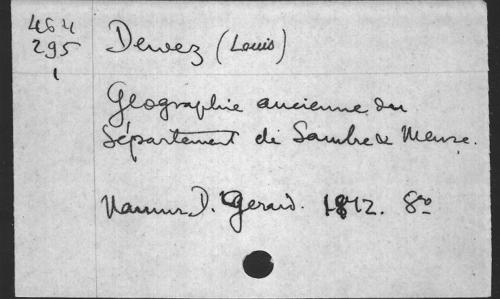 464
295
1
Dewez (Louis)
Géographie ancienne du
Département de Sambre & Meuse.
Namur, D. Gerard. 1812. 8º